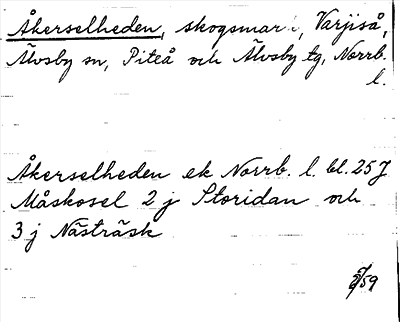 Åkerselheden, skogsmark, Varjiså,
Älvsby sn, Piteå och Älvsby tg, Norrb.
l.
Åkerselheden ek Norrb. l. bl. 25 J
Måskosel 2 j Storidan och
3 j Nästräsk